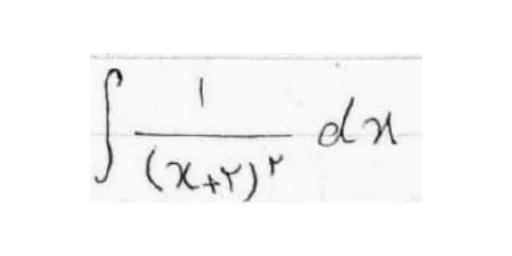 ∫ ۱/(x+۲)^۲ dx